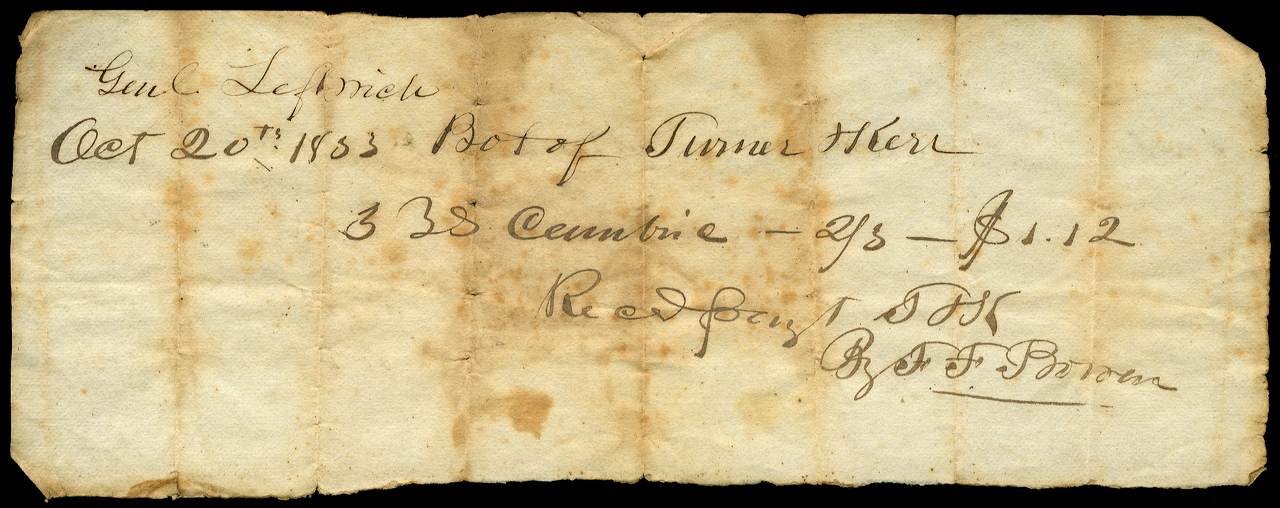 Genl Leftwich
Oct 20th 1833 Bot of Turner & Kerr
3 yds Cambric — 2/3 — $1.12
Recd payt T & K
By F F Bowen